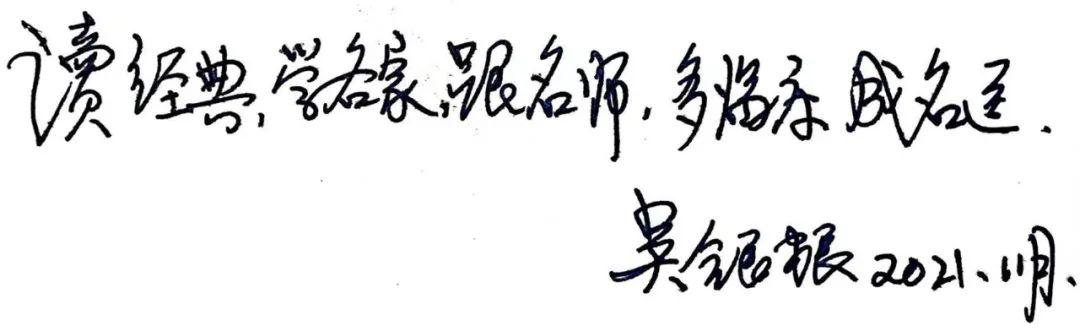 读经典,学各家,跟名师,多临床,成名医.
吴银根 2021.11月.